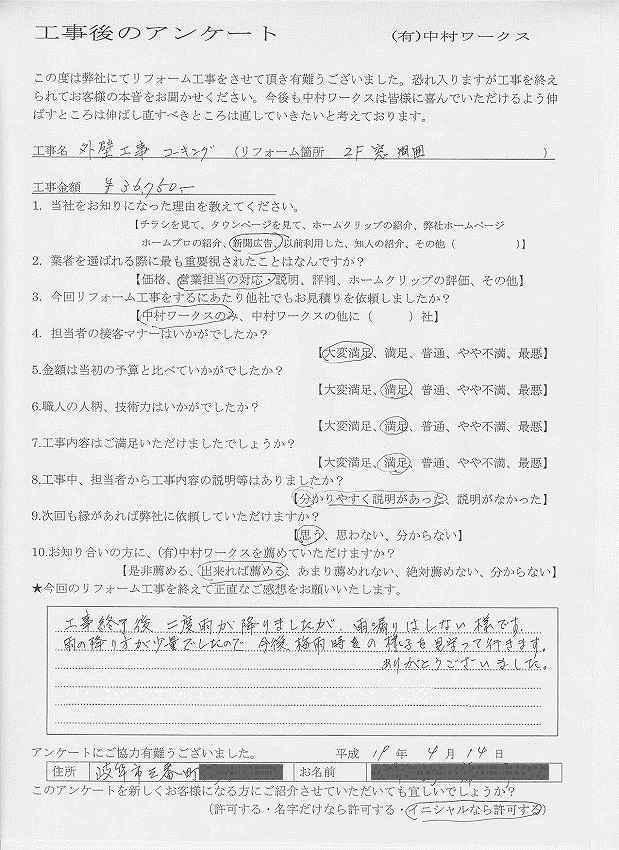 工事後のアンケート (有)中村ワークス
この度は弊社にてリフォーム工事をさせて頂き有難うございました。恐れ入りますが工事を終え
られてお客様の本音をお聞かせください。今後も中村ワークスは皆様に喜んでいただけるよう伸
ばすところは伸ばし直すべきところは直していきたいと考えております。
工事名 外壁工事 コーキング (リフォーム箇所 2F 窓 周囲 )
工事金額 ¥36,750-
1. 当社をお知りになった理由を教えてください。
【チラシを見て、タウンページを見て、ホームクリップの紹介、弊社ホームページ
ホームプロの紹介、新聞広告、以前利用した、知人の紹介、その他 ( )】
2. 業者を選ばれる際に最も重要視されたことはなんですか?
【価格、営業担当の対応・説明、評判、ホームクリップの評価、その他】
3. 今回リフォーム工事をするにあたり他社でもお見積りを依頼しましたか?
【中村ワークスのみ、中村ワークスの他に ( ) 社】
4. 担当者の接客マナーはいかがでしたか?
【大変満足、満足、普通、やや不満、最悪】
5.金額は当初の予算と比べていかがでしたか?
【大変満足、満足、普通、やや不満、最悪】
6.職人の人柄、技術力はいかがでしたか?
【大変満足、満足、普通、やや不満、最悪】
7.工事内容はご満足いただけましたでしょうか?
【大変満足、満足、普通、やや不満、最悪】
8.工事中、担当者から工事内容の説明等はありましたか?
【分かりやすく説明があった、説明がなかった】
9.次回も縁があれば弊社に依頼していただけますか?
【思う、思わない、分からない】
10.お知り合いの方に、(有)中村ワークスを薦めていただけますか?
【是非薦める、出来れば薦める、あまり薦めれない、絶対薦めない、分からない】
★今回のリフォーム工事を終えて正直なご感想をお願いいたします。
工事終了後 二度雨が降りましたが、雨漏りはしない様です。
雨の降り方が少量でしたので 今後 梅雨時季の様子を見守って行きます。
ありがとうございました。
アンケートにご協力有難うございました。 平成 19 年 4 月 14 日
住所 岐阜市 番町 お名前
このアンケートを新しくお客様になる方にご紹介させていただいても宜しいでしょうか?
(許可する・名字だけなら許可する・イニシャルなら許可する)